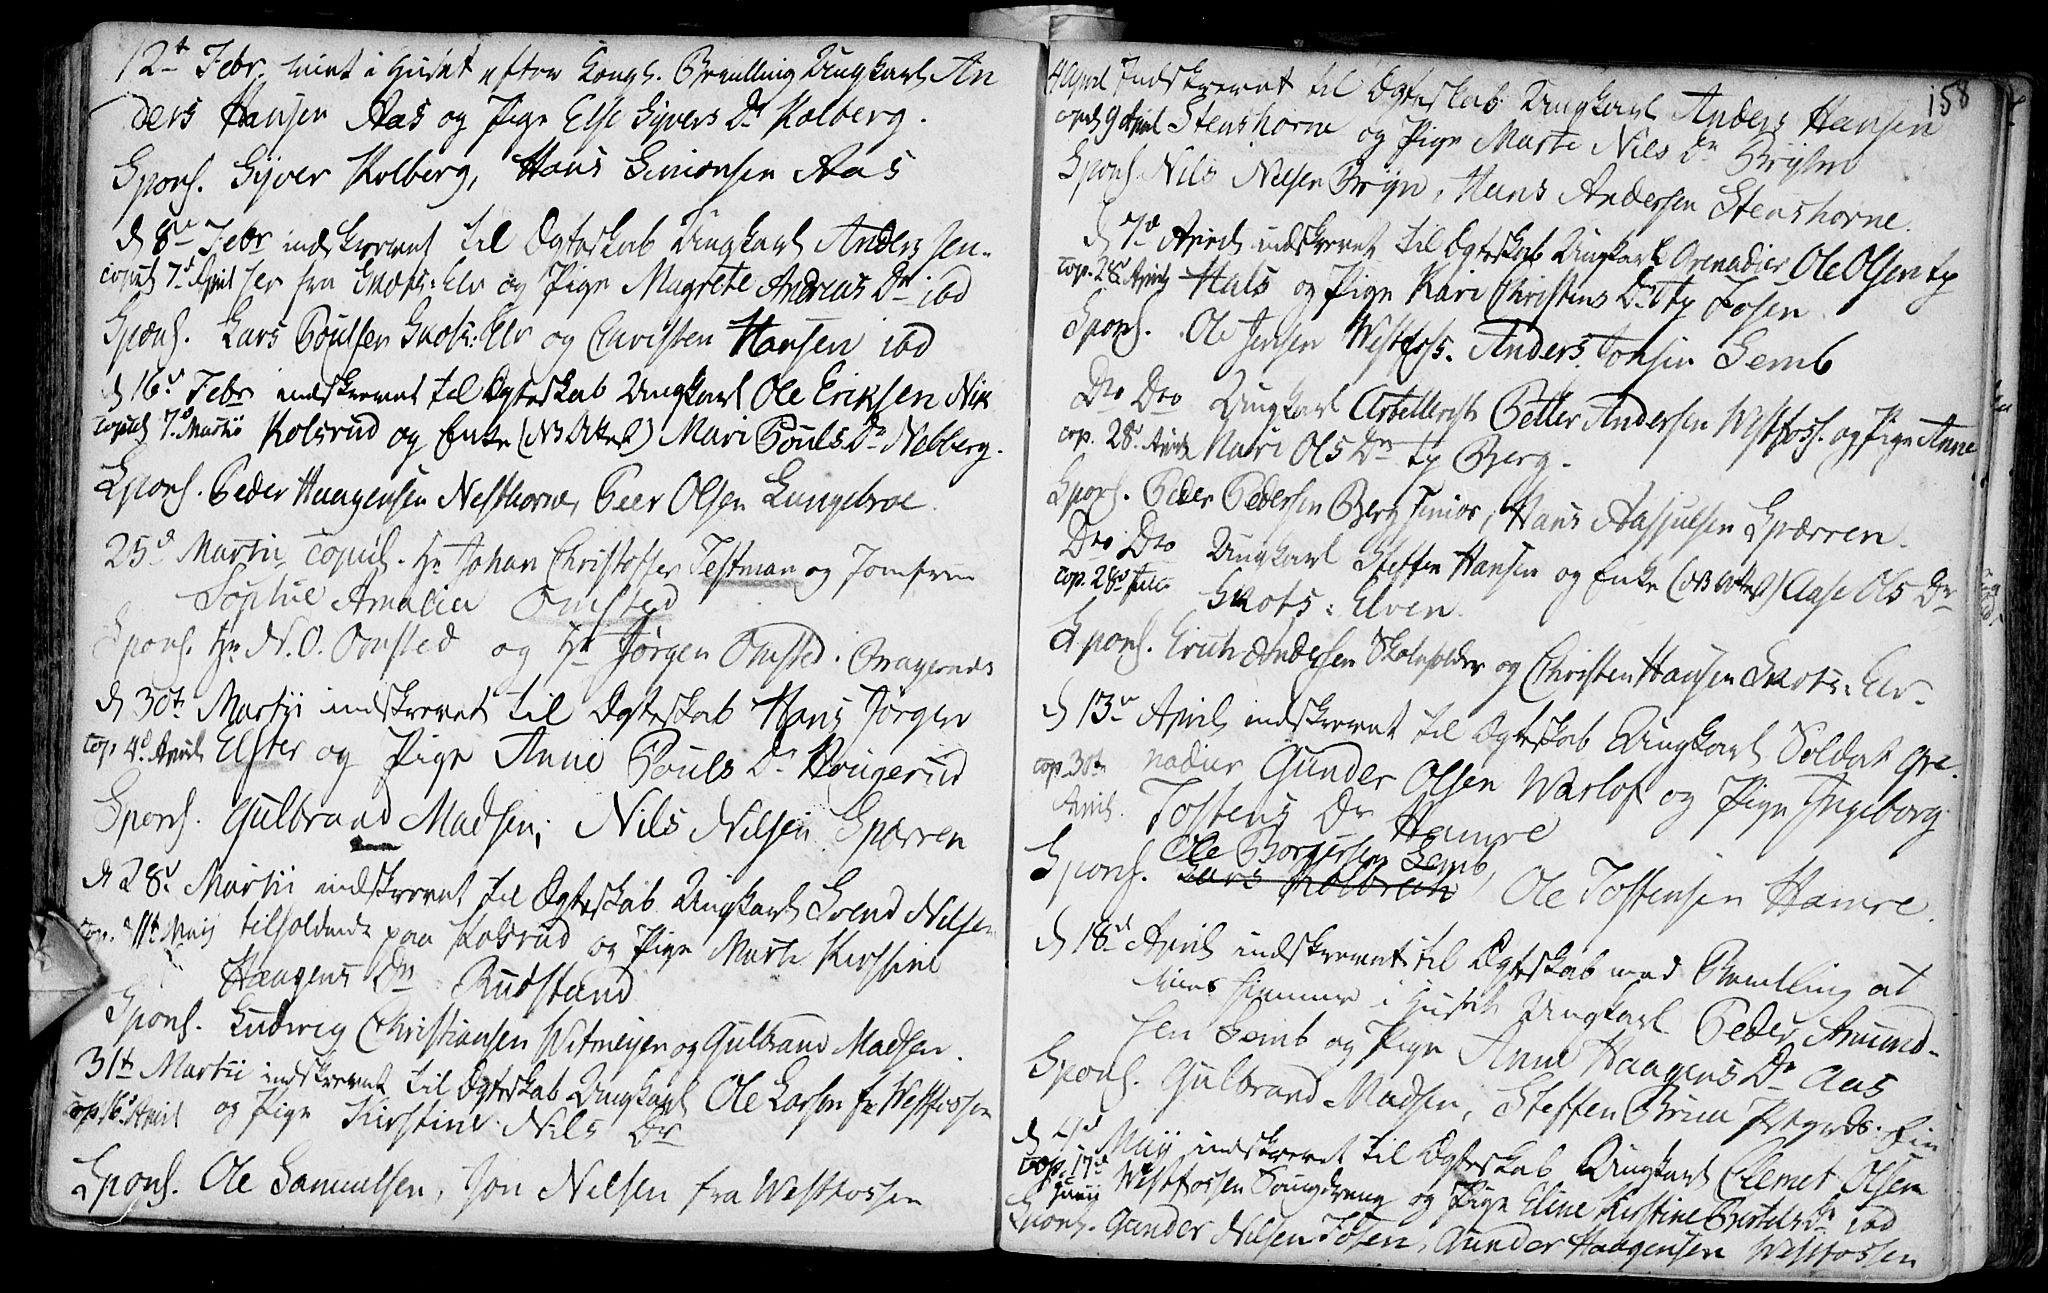 12te Febr. viet i Huset efter Kongl. Bevilling Ungkarl An
ders Hansen Aas og Pige Else Syvers Dr Kolberg.
Spons. Syver Kolberg, Hans Simonsen Aas
d 8de Febr indskrevet til Ægteskab Ungkarl Anders Jen-
copul 7d April ser fra Snots: Elv og Pige Magrete Andreas Dr ibd
Spons. Lars Poulsen Snots: Elv og Christen Hansen ibd
d 16d Febr indskrevet til Ægteskab Ungkarl Ole Eriksen Nik
copul 7d Martii Kolsrud og Enke (NB Attest) Mari Pouls Dr Nebberg.
Spons. Peder Haagensen Nesthorne, Peer Olsen Langebroe
25d Martii copul. Hr Johan Christoffer Testman og Jomfrue
Sophie Amalia Omsted
Spons. Hr N. O. Omsted og Hr Jørgen Omsted. Bragernæs
d 30te Martii indskrevet til Ægteskab Hans Jørgen
cop. 4d April Elster og Pige Anne Pouls Dr Hougerud
Spons. Gulbrand Madsen, Nils Nilsen Sparren
d 28d Martii indskrevet til Ægteskab Ungkarl Svend Nilsen
cop. d 11te Maij tilholdende paa Kolsrud og Pige Marte Kirstine
Haagens Dr Rudstand
Spons. Ludwig Christiansen Witmeyer og Gulbrand Madsen.
31te Martii indskrevet til Ægteskab Ungkarl Ole Larsen fr Westfossen
cop. 16d April og Pige Kirstine Nils Dr
Spons. Ole Samuelsen, Jon Nilsen fra Westfossen
158
4 April Indskrevet til Ægteskab Ungkarl Anders Hansen
copul 9 April Stenshorne og Pige Marte Nils Dr Bryn
Spons. Nils Nilsen Bryn, Hans Andersen Stenshorne.
d 7d April indskrevet til Ægteskab Ungkarl Grenadier Ole Olsen
cop. 28d April Hals og Pige Kari Christens Dr Fosen
Spons. Ole Jensen Westfoss. Anders Jonsen Semb
Dto Dto Ungkarl Petter Andersen Westfoss. og Pige Anne
cop. 28d April Mari Ols Dr Berg.
Spons. Peder Pedersen Berg junior, Hans Aasulsen Sparren.
Dto Dto Ungkarl Steffen Hansen og Enke (NB Attest) Aase Ols Dr
cop. 28d Julii Snots: Elven.
Spons. Erich Andersen Skoleholder og Christen Hansen Snots: Elv-
d 13de April indskrevet til Ægteskab Ungkarl Soldat Gre-
cop. 30te nadier Gunder Olsen Warlof og Pige Ingeborg
April. Tostens Dr Hamre
Ole Borgersen Semb,
Spons. Lars Kolbreck Ole Tostensen Hamre.
d 18d April indskrevet til Ægteskab med Bevilling at
vies hiemme i Huset Ungkarl Peder Amund-
sen Semb og Pige Anne Haagens Dr Aas
Spons. Gulbrand Madsen, Steffen Bruu
d 4d Maij indskrevet til Ægteskab Ungkarl Clemet Olsen
cop. 17d Westfossen Saugdreng og Pige Eline Kirstine Bertels Dr ibd
Junii
Spons. Gunder Nilsen Fosen, Gunder Haagensen Westfossen